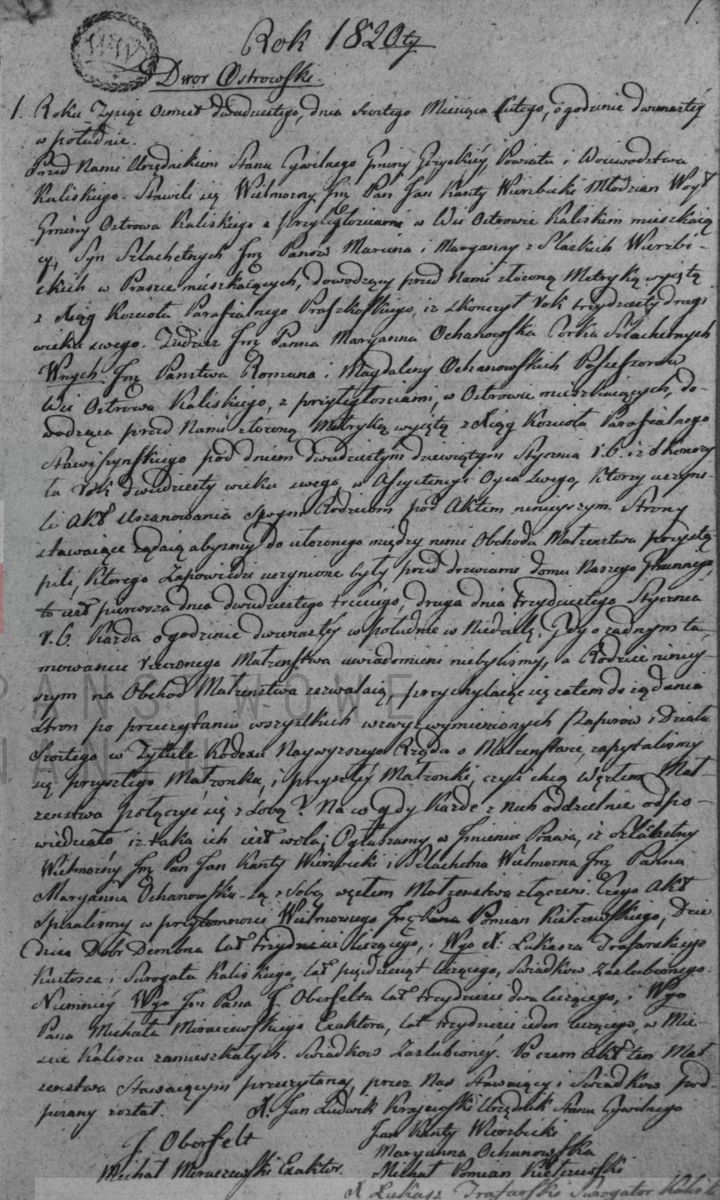 1.
Rok 1820ty
Dwor Ostrowski.
1. Roku Tysiąc Osmset dwudziestego, dnia szostego Miesiąca Lutego, o godzinie dwunastéy
w południe.
Przed Nami Urzędnikiem Stanu Cywilnego Gminy Powiatu i Woiewodztwa
Kaliskiego. Stawili się Wielmozny Jmć Pan Jan Kanty Wierzbicki Młodzian Woyt
Gminy Ostrowa Kaliskiego z przyległosciami w Wsi Ostrowie Kaliskim mieszkaią
cy, Syn Szlachetnych Jmć Panow Marcina i Maryanny z Slaskich Wierzbi-
ckich w Praszce mieszkaiących, dowodzący przed Nami złozoną Metryką wyiętą
z Xiąg Koscioła Parafialnego Praszkoskiego, iz skonczył Rok trzydziesty drugi
wieku swego. Tudziez Jmć Panna Maryanna Ochanowska Corka Szlachetnych
Wnych Jmć Panstwa Romana i Magdaleny Ochanowskich Possessorow
Wsi Ostrowa Kaliskiego, z przyległosciami, w Ostrowie mieszkaiących, do-
wodząca przed Nami złozoną Metryką wyiętą z Xiąg Koscioła Parafialnego
Stawiszynskiego pod dniem dwudziestym dziewiątym Stycznia r. b. iz skonczy
ła Rok dwudziesty wieku swego, w Assystencyi Oyca swego, ktorzy uczyni-
li Akt Uszanowania swoym Rodzicom pod Aktem ninieyszym. Strony
stawaiące ządaią abysmy do ułozonego między nimi Obchodu Małzenstwa przystą
pili, ktorego Zapowiedzi uczynione były przed drzwiami domu Naszego Gminnego,
to iest pierwsza dnia dwudziestego trzeciego, druga dnia trzydziestego Stycznia
r. b. Kazda o godzinie dwunastéy w południe w Niedzielę. Gdy o zadnym ta
mowaniu rzeczonego Małzenstwa uwiadomieni niebylismy, a Rodzice niniey-
szym na Obchod Małzenstwa zezwalaią, przychylaiąc się zatem do ządania
Stron po przeczytaniu wszystkich wzwyz wymienionych Papierow i Działu
szostego w Tytule Kodexu Naywyzszego Rządu o Małzenstwie, zapytalismy
się przyszłego Małzonka, i przyszłéy Małzonki, czyli chcą węzłem Mał-
zenstwa połączyć się z sobą? Na co gdy kazde z nich oddzielnie odpo-
wiedziało iz taka ich iest wola; Ogłaszamy w Jmieniu Prawa, iz Szlachetny
Wielmozny Jmć Pan Jan Kanty Wierzbicki i Szlachetna Wielmozna Jmć Panna
Maryanna Ochanowska są z sobą węzłem Małzenstwa złączeni. Czego Akt
spisalismy w przytomnosci Wielmoznego Jmć Pana Pomian Kiełczewskiego, Dzie
dzica Dobr lat trzydziesci liczącego, i Wgo X. Łukasza Trafarskiego
Kustosza i Surogata Kaliskiego, lat pięćdziesiąt liczącego, Swiadkow Zaslubionego.
Niemniey Wgo Jmć Pana J. Oberfelta lat trzydziesci dwa liczącego, i Wgo
Pana Michała Miraszewskiego Exaktora, lat trzydziesci ieden liczącego, w Mie-
scie Kaliszu zamieszkałych. Swiadkow Zaslubionéy. Po czem Akt ten Mał
zenstwa stawaiącym przeczytany, przez Nas stawaiący i Swiadkow pod
pisany został. X. Jan Ludwik Krajewski Urzędnik Stanu Cywilnego
J. Oberfelt Jan Kanty Wierzbicki
Maryanna Ochanowska
Michał Miraszewski Exaktor. Michał Pomian Kiełczewski
X Łukasz Trafarski Surogator Kalisk